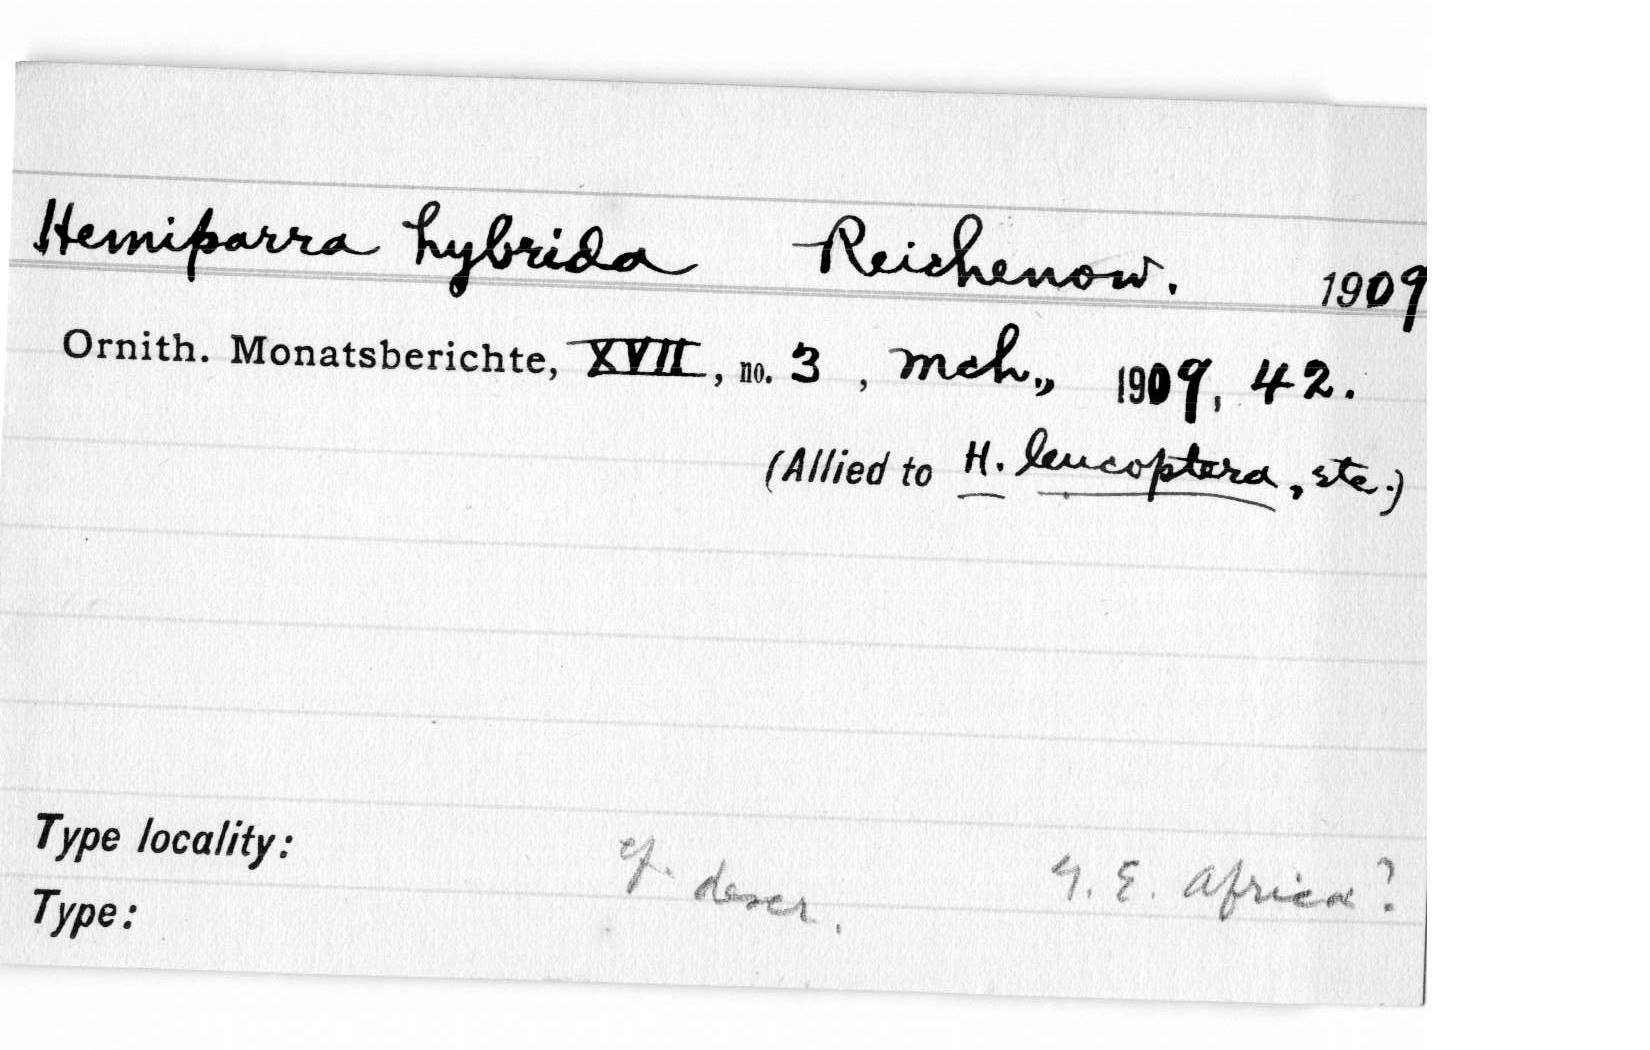 Hemiparra hybrida Reichenow. 1909
Ornith. Monatsberichte, XVII, no. 3, Mch., 1909, 42.
(Allied to H. leucoptera, etc.)
Type locality: cf. descr. G. E. Africa?
Type: